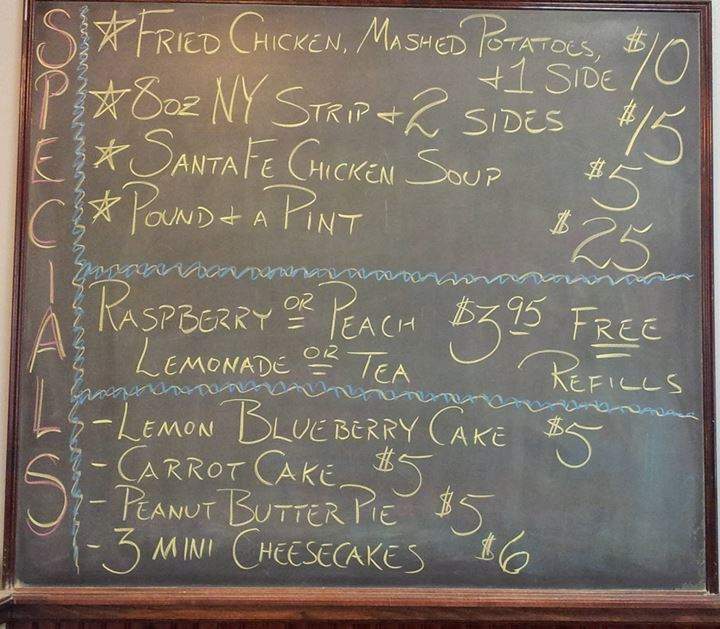 SPECIALS
☆ FRIED CHICKEN, MASHED POTATOES, $10
+1 SIDE
☆ 8OZ NY STRIP + 2 SIDES $15
☆ SANTA FE CHICKEN SOUP $5
☆ POUND + A PINT $25
RASPBERRY OR PEACH $3.95 FREE
LEMONADE OR TEA REFILLS
- LEMON BLUEBERRY CAKE $5
- CARROT CAKE $5
- PEANUT BUTTER PIE $5
- 3 MINI CHEESECAKES $6